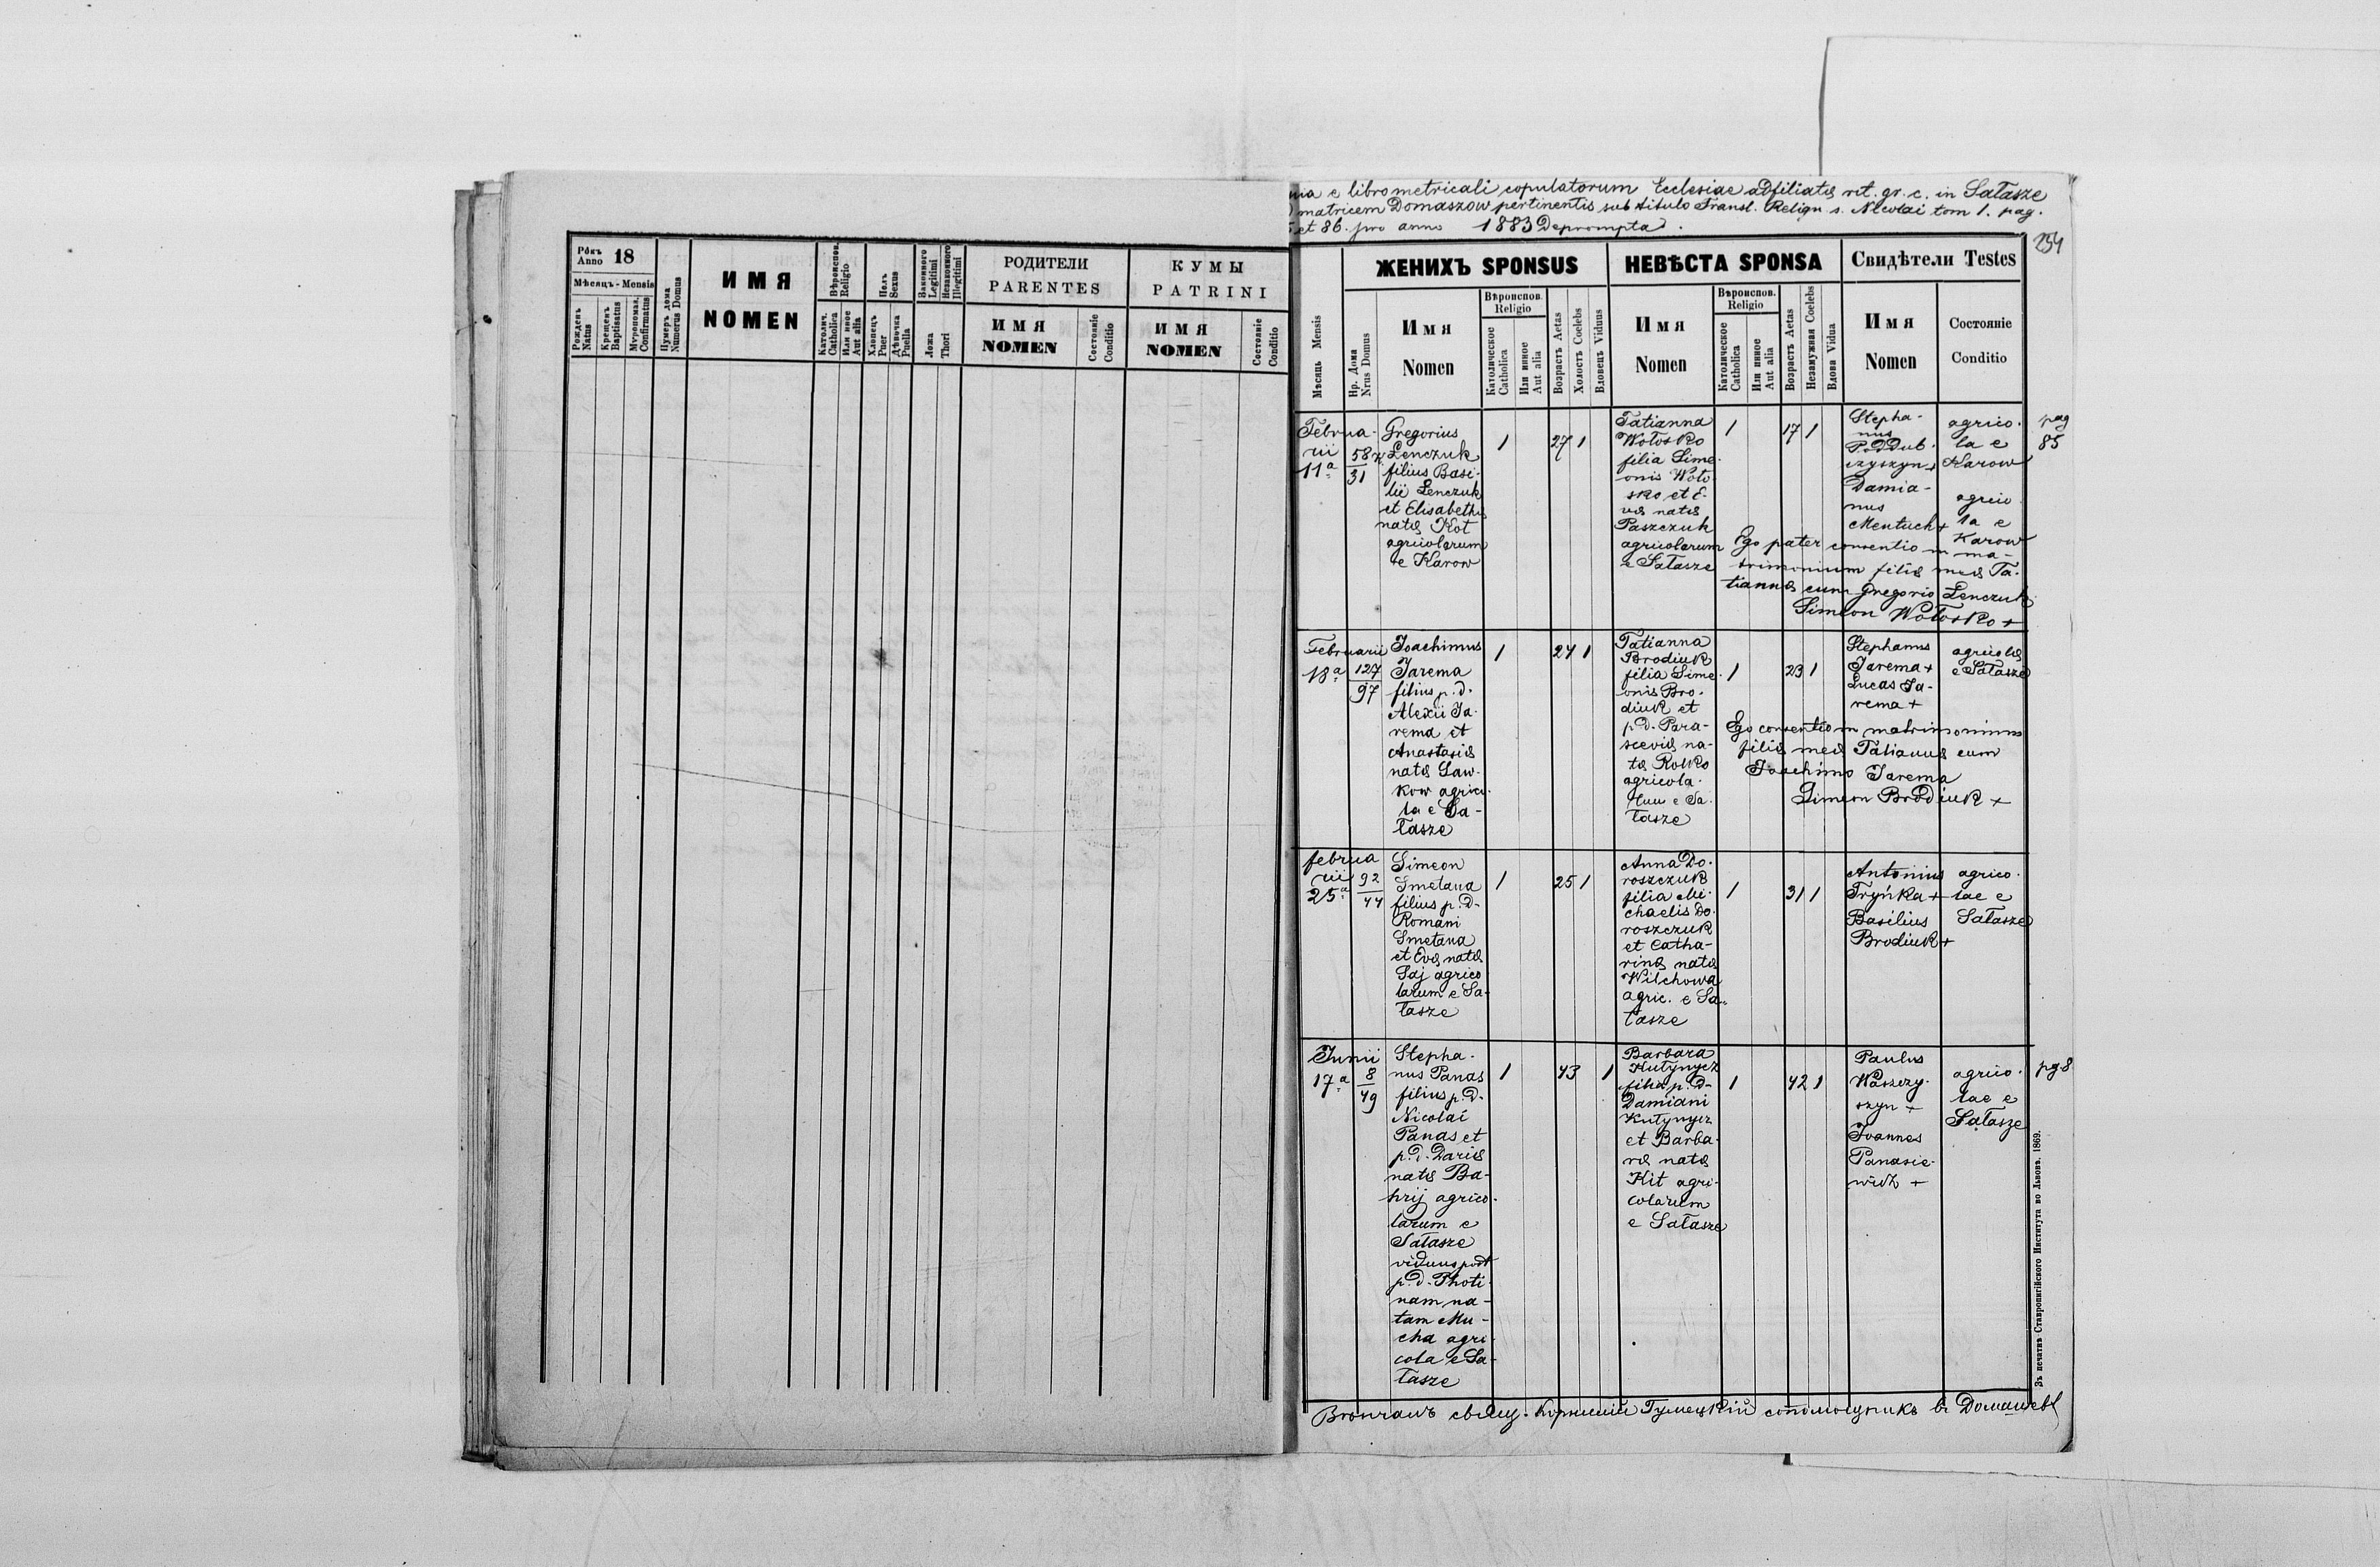 Рôкъ
Anno 18
Мѣсяцъ - Mensis
Рожденъ
Natus
Крещенъ
Baptisatus
Мѵропомаз.
Confirmatus
Нумеръ дома
Numerus Domus
ИМЯ
NOMEN
Вѣроиспов.
Religio
Католич.
Catholica
Или иное
Aut alia
Полъ
Sexus
Хлопецъ
Puer
Дѣвочка
Puella
Законного
Legitimi
Незаконного
Illegitimi
Ложа
Thori
РОДИТЕЛИ
PARENTES
ИМЯ
NOMEN
Состояніе
Conditio
КУМЫ
PATRINI
ИМЯ
NOMEN
Состояніе
Conditio
e libro metricali copulatorum Ecclesiae adfiliatæ rit. gr. c. in Sałasze
matricem Domaszow pertinentis sub titulo Transl. Reliqu. s. Nicolai tom 1. pag.
et 86. pro anno 1883 Deprompta.
254
Мѣсяцъ Mensis
Нр. Дома
Nrus Domus
ЖЕНИХЪ SPONSUS
Имя
Nomen
Вѣроиспов.
Religio
Католическое
Catholica
Или инное
Aut alia
Возрастъ Aetas
Холостъ Coelebs
Вдовецъ Viduus
НЕВѢСТА SPONSA
Имя
Nomen
Вѣроиспов.
Religio
Католическое
Catholica
Или инное
Aut alia
Возрастъ Aetas
Незамужная Coelebs
Вдова Vidua
Свидѣтели Testes
Имя
Nomen
Состояніе
Conditio
Februa-
rii
11ª
58
31
Gregorius
Lenczuk
filius Basi-
lii Lenczuk
et Elisabethæ
natæ Kot
agricolarum
e Karow
1
27 1
Tatianna
Wołosko
filia Sime-
onis Woło
sko et E-
væ natæ
Paszczuk
agricolarum
e Sałasze
1
17 1
Stepha-
nus
Poddub-
czyszyn +
Damia-
nus
Mentuch +
agrico-
la e
Karow
agrico
la e
Karow
pag
85
Ego pater consentio in ma-
trimonium filiæ meæ Ta-
tiannæ cum Gregorio Lenczuk
Simeon Wołosko +
Februarii
18ª
127
97
Joachimus
Jarema
filius p. d.
Alexii Ja-
rema et
Anastasiæ
natæ Law-
kow agrico-
la e Sa-
łasze
1
24 1
Tatianna
Brodiuk
filia Sime-
onis Bro-
diuk et
p. d. Para-
sceviæ na-
tæ Rołko
agricola-
rum e Sa-
łasze
1
23 1
Stephanus
Jarema +
Lucas Ja-
rema +
agricolæ
e Sałasze
Ego consentio in matrimonium
filiæ meæ Tatiannæ cum
Joachimo Jarema
Simeon Brodiuk +
februa
rii
25ª
92
44
Simeon
Smetana
filius p. d.
Romani
Smetana
et Evæ natæ
Saj agrico
larum e Sa-
łasze
1
25 1
Anna Do-
roszczuk
filia Mi-
chaelis Do-
roszczuk
et Catha-
rinæ natæ
Wilchowa
agric. e Sa-
łasze
1
31 1
Antonius
Tryńka +
Basilius
Brodiuk +
agrico-
lae e
Sałasze
Junii
17ª
8
49
Stepha-
nus Panas
filius p. d.
Nicolai
Panas et
p. d. Dariæ
natæ Ba-
hrij agrico-
larum e
Sałasze
viduus post
p. d. Photi-
nam na-
tam Mu-
cha agri-
cola e Sa-
łasze
1
43
1
Barbara
Kutynycz
filia p. d.
Damiani
Kutynycz
et Barba-
ræ natæ
Kit agri-
colarum
e Sałasze
1
42 1
Paulus
Waszczy-
szyn +
Joannes
Panasie-
wicz +
agrico-
lae e
Sałasze
pg 8
Вѣнчавъ свящ. Корнилій Гумецкій сопомощникъ въ Домашевѣ
Зъ печатнѣ Ставропигійского Института во Львовѣ. 1869.